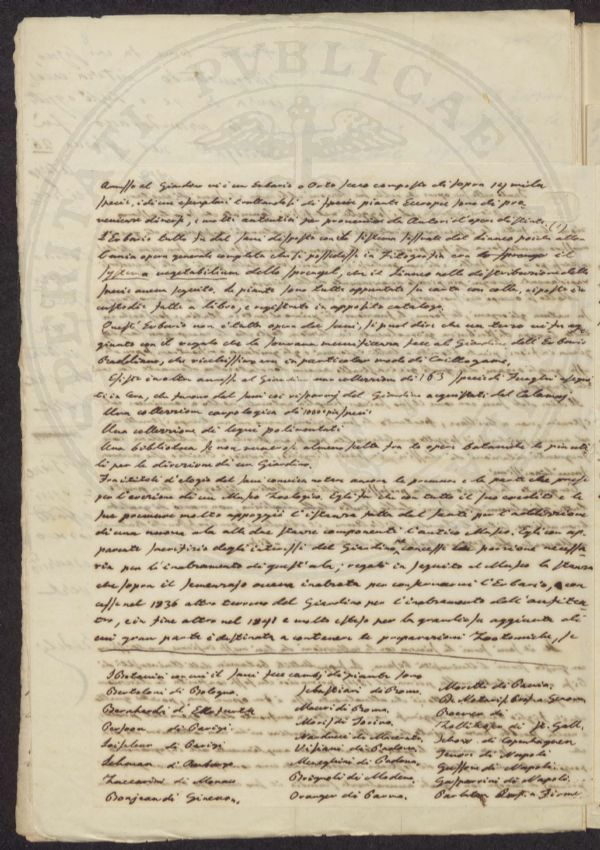 Annesso al Giardino vi è un Erbario o Orto secco composto di sopra mila
specie, e di un esemplari trattandosi di specie piante Europee sono di pro
venienze diverse, e molti autentici per provenire da Autori d'opere distinte
L'Erbario tutto fu dal Savi disposto con il sistema sessuale del Linneo poichè allora
l'unica opera generale completa che si possedesse in Fitografia era lo Sprengel il
systema vegetabilium dello Sprengel, che il Linneo nella distribuzione delle
specie aveva seguito. Le piante sono tutte appuntate su carta con colla, e riposte in
custodie fatte a libro, e registrate in apposito catalogo.
Quest' Erbario non è tutto opera del Savi, si può dire che un terzo vi fu ag
giunto con il regalo che la Sovrana munificenza fece al Giardino dell' Erbario
Raddiano, che ricchissimo era in particolar modo di Crittogame.
Esiste inoltre annessa al Giardino una collezione di 163 specie di Funghi esegui
ti in cera, che furono dal Savi coi risparmj del Giardino acquistati dal Calamaj
Una collezione carpologica di 1000 e più specie
Una collezione di legni polimentati
Una biblioteca se non numerosa almeno fatta fra le opere botaniche le più uti
li per la direzione di un Giardino.
Fra i titoli d'elogio del Savi conviene notare ancora le premure e la parte che prese
per l'erezione di un Museo Zoologico. Egli fu che con tutto il suo credito e le
sue premure molto appoggiò l'istanza fatta dal Santi per l'addizione
di una nuova ala alle due stanze componenti l'antico Museo. Egli con ap
parente sacrifizio degli interessi del Giardino, ne concesse la porzione necessa
ria per l'inalzamento di quest'ala; regalò in seguito al Museo la stanza
che sopra il semenzajo aveva inalzata per conservarvi l'Erbario, con
cesse nel 1836 altro terreno del Giardino per l'inalzamento dell' anfitea
tro, e in fine altro nel 1841 e molto esteso per la grandiosa aggiunta di
cui gran parte è destinata a contenere le preparazioni Zootomiche, se
I Botanici con cui il Savi fece cambj di piante sono
Bertoloni di Bologna. Sebastiani di Roma. Moretti di Pavia.
Bernhardi d'Erfurt Mauri di Roma. De Notaris Genova.
Persoon di Parigi Moris di Torino.
Loiseleur di Parigi Narducci di Macerata. Zollikofer di St. Gall.
Lehman di Amburgo. Visiani di Padova. Schouw di Copenhagen
Zuccarini di Monaco Meneghini di Padova. Tenori di Napoli
Bonjean di Ginevra. Brignoli di Modena. Gussoni di Napoli.
Oranger di Parma. Gasparrini di Napoli.
Parlatore Firenze